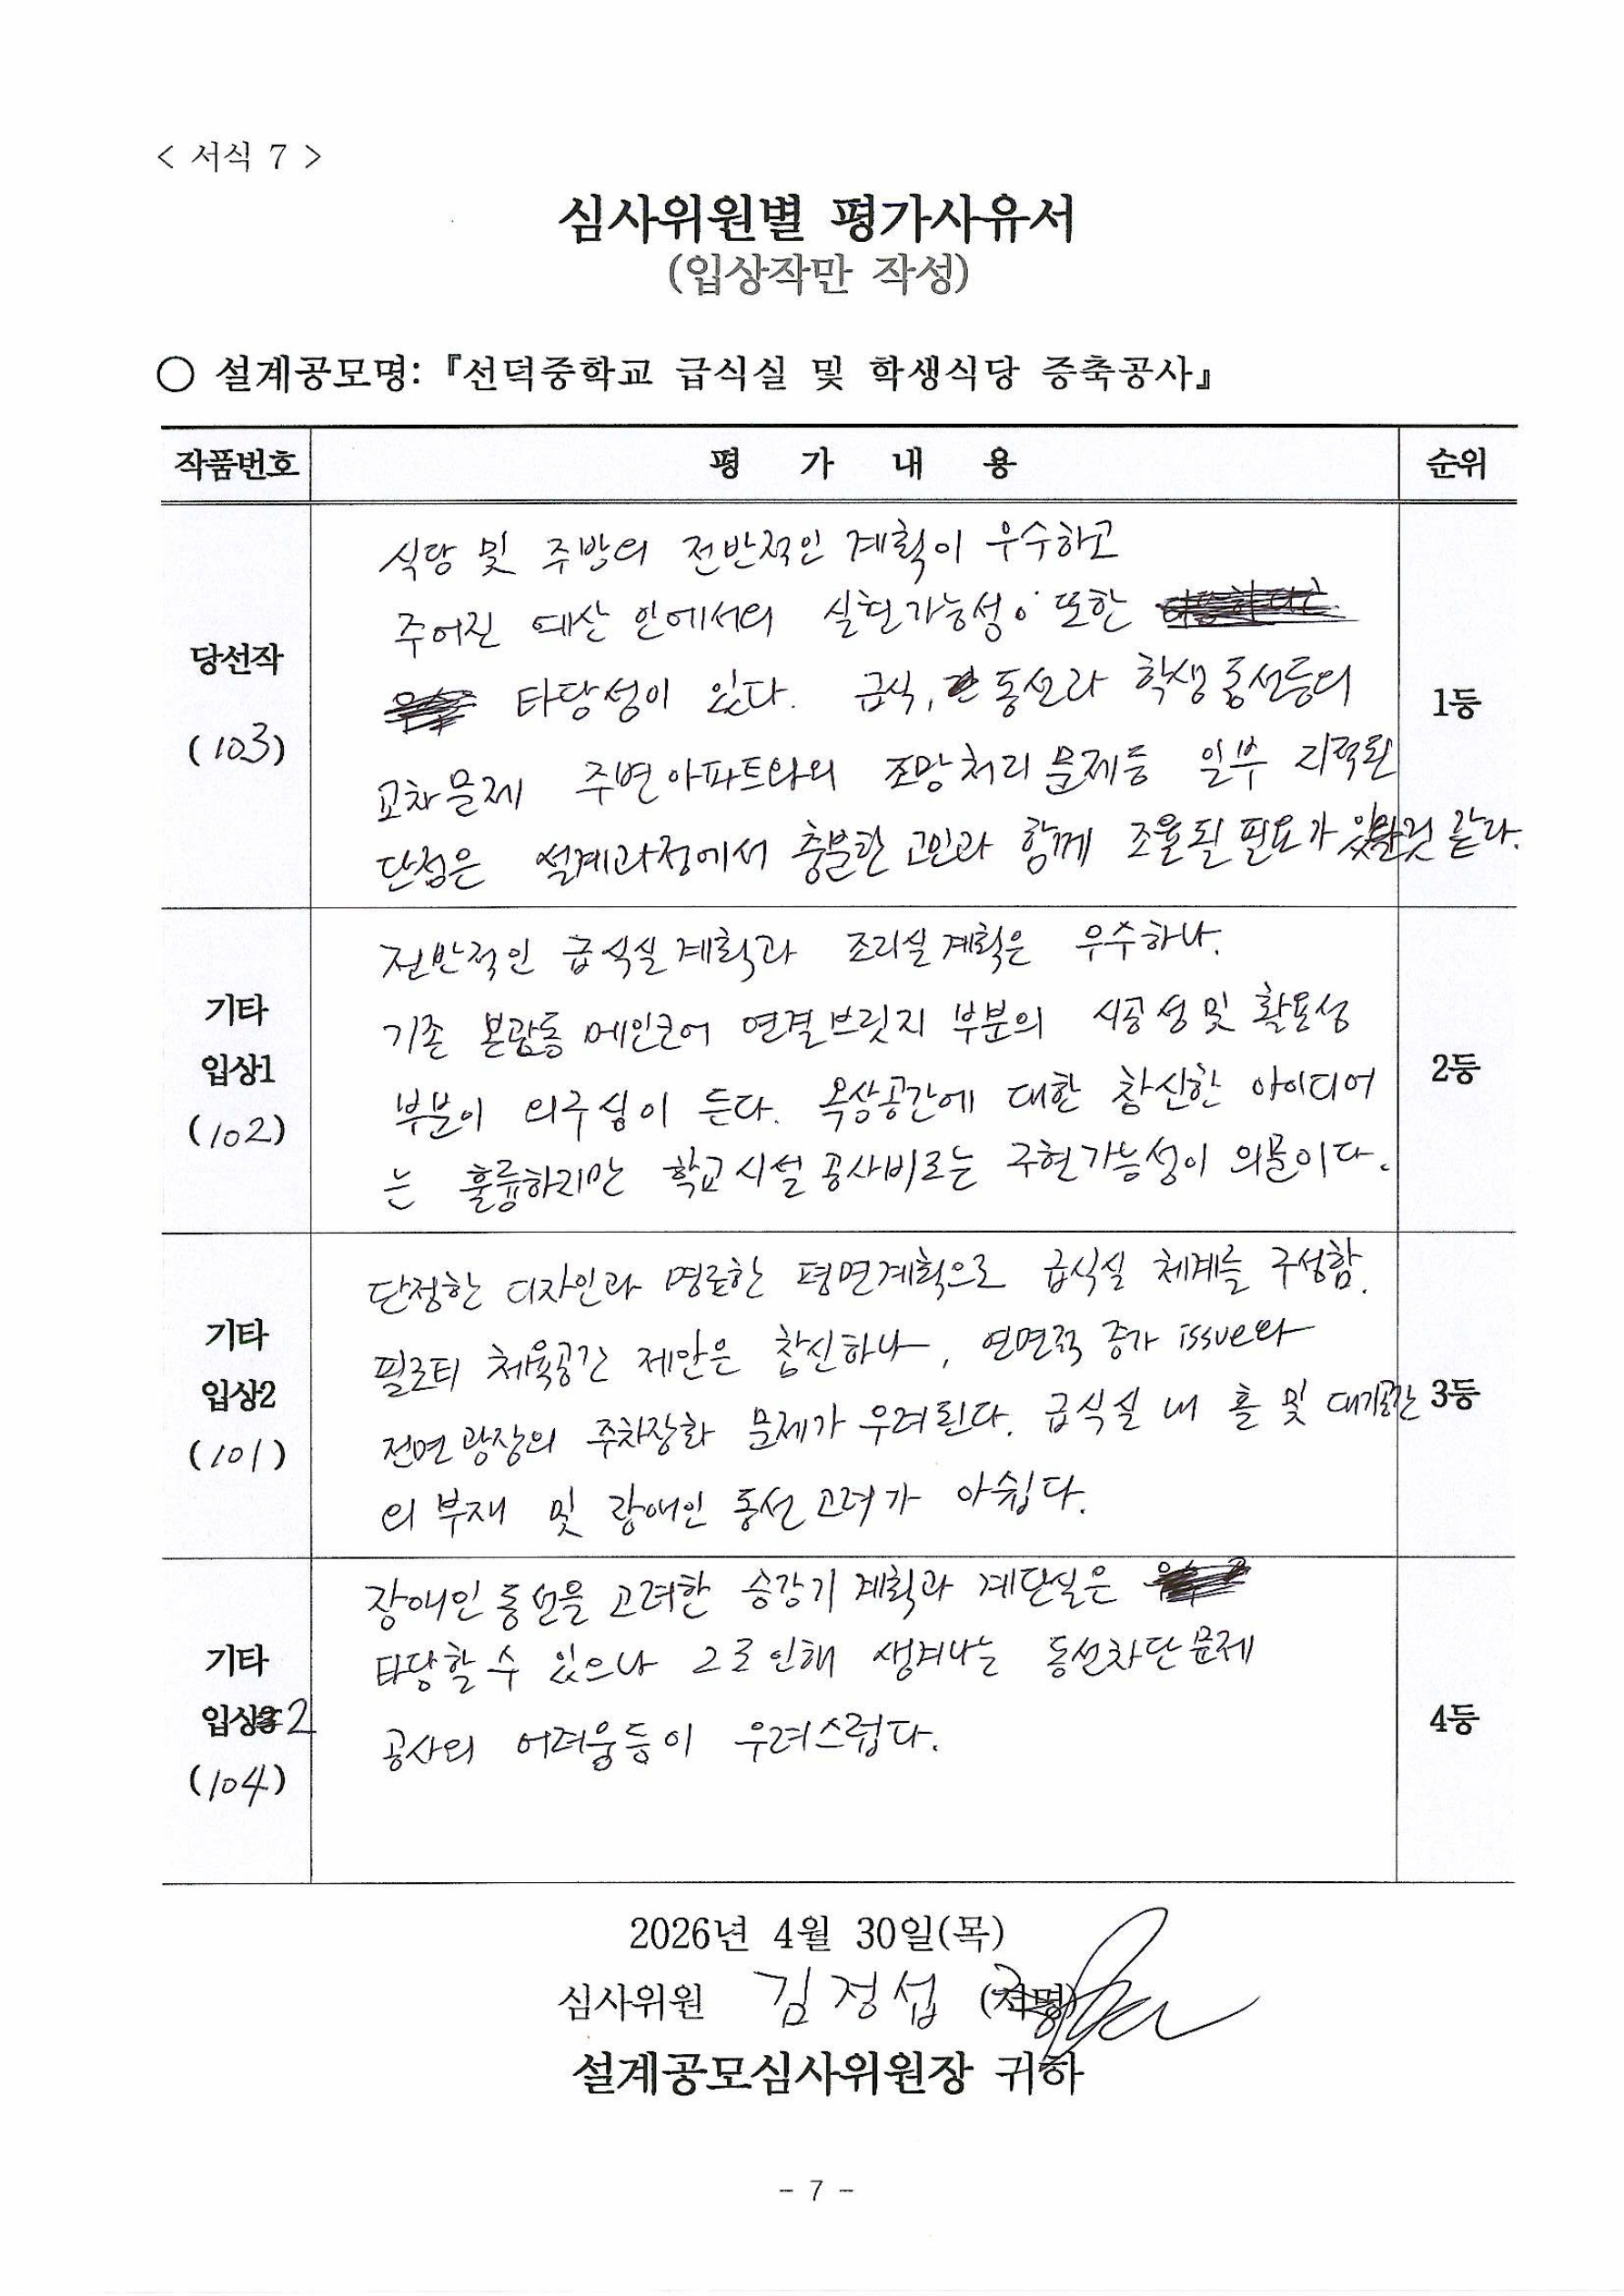 < 서식 7 >
심사위원별 평가사유서
(입상작만 작성)
○ 설계공모명: 『선덕중학교 급식실 및 학생식당 증축공사』
작품번호 평 가 내 용 순위
당선작
(103)
식당 및 주방의 전반적인 계획이 우수하고
주어진 예산 안에서의 실현가능성이 또한
타당성이 있다. 급식, 동선과 학생동선등의
교차문제 주변아파트와의 조망처리문제등 일부 지적된
단점은 설계과정에서 충분한 고민과 함께 조율될 필요가 있을것 같다.
1등
기타
입상1
(102)
전반적인 급식실계획과 조리실계획은 우수하나.
기존 본관동 메인코어 연결브릿지 부분의 시공성및 활용성
부분이 의구심이 든다. 옥상공간에 대한 참신한 아이디어
는 훌륭하지만 학교시설 공사비로는 구현가능성이 의문이다.
2등
기타
입상2
(101)
단정한 디자인과 명료한 평면계획으로 급식실 체계를 구성함.
필로티 체육공간 제안은 참신하나, 연면적 증가 issue와
전면광장의 주차장화 문제가 우려된다. 급식실 내 홀 및 대기공간
의 부재 및 장애인 동선고려가 아쉽다.
3등
기타
입상2
(104)
장애인동선을 고려한 승강기계획과 계단실은
타당할수 있으나 그로인해 생겨나는 동선차단문제
공사의 어려움등이 우려스럽다.
4등
2026년 4월 30일(목)
심사위원 김정섭 (서명)
설계공모심사위원장 귀하
- 7 -